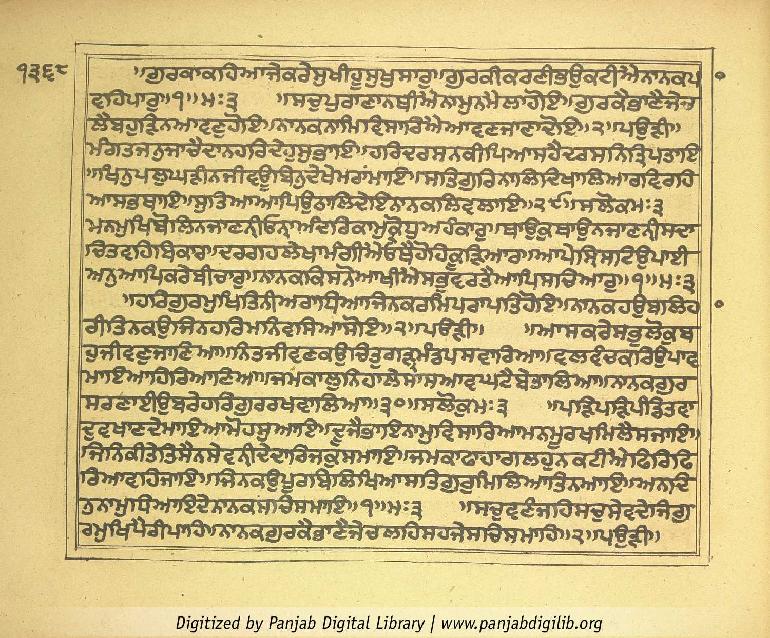 ੧੩੬੮
॥ਗੁਰਕਾਕਹਿਆਜੇਕਰੇਸੁਖੀਹੂਸੁਖੁਸਾਰੁ॥ਗੁਰਕੀਕਰਣੀਭਉਕਟੀਐਨਾਨਕਪ
ਵਹਿਪਾਰੁ॥੧॥ਮਃ੩ ॥ਸਚੁਪੁਰਾਣਾਨਥੀਐਨਾਮੁਨਮੈਲਾਹੋਇ॥ਗੁਰਕੈਭਾਣੈਜੇਚ
ਲੈਬਹੁੜਿਨਆਵਣੁਹੋਇ॥ਨਾਨਕਨਾਮਿਵਿਸਾਰਿਐਆਵਣਜਾਣਾਦੋਇ॥੨॥ਪਉੜੀ॥
ਮੰਗਤਜਨੁਜਾਚੈਦਾਨਹਰਿਦੇਹੁਸੁਭਾਇ॥ਹਰਿਦਰਸਨਕੀਪਿਆਸਹੈਦਰਸਨਿਤ੍ਰਿਪਤਾਇ
॥ਖਿਨੁਪਲੁਘੜੀਨਜੀਵਊਬਿਨੁਦੇਖੇਮਰਾਂਮਾਇ॥ਸਤਿਗੁਰਿਨਾਲਿਦਿਖਾਲਿਆਰਵਿਰਹਿ
ਆਸਭਥਾਇ॥ਸੁਤਿਆਆਪਿਉਠਾਲਿਦੇਇਨਾਨਕਲਿਵਲਾਇ॥੨੯॥ਸਲੋਕਮਃ੩
ਮਨਮੁਖਿਬੋਲਿਨਜਾਣਨੀਓਨਾਅੰਦਰਿਕਾਮੁਕ੍ਰੋਧੁਅਹੰਕਾਰੁ॥ਥਾਉਕੁਥਾਉਨਜਾਣਨੀਸਦਾ
ਚਿਤਵਹਿਬਿਕਾਰ॥ਦਰਗਹਲੇਖਾਮੰਗੀਐਓਥੈਹੋਹਿਕੂੜਿਆਰ॥ਆਪੇਸ੍ਰਿਸਟਿਉਪਾਈ
ਅਨੁਆਪਿਕਰੇਬੀਚਾਰੁ॥ਨਾਨਕਕਿਸਨੋਆਖੀਐਸਭੁਵਰਤੈਆਪਿਸਚਿਆਰੁ॥੧॥ਮਃ੩
॥ਹਰਿਗੁਰਮੁਖਿਤਿਨੀਅਰਾਧਿਆਜਿਨਕਰਮਿਪਰਾਪਤਿਹੋਇ॥ਨਾਨਕਹਉਬਲਿਹ
ਰੀਤਿਨਕਉਜਿਨਹਰਿਮਨਿਵਸਿਆਸੋਇ॥੨॥ਪਉੜੀ॥ ॥ਆਸਕਰੇਸਭੁਲੋਕੁਬ
ਹੁਜੀਵਣੁਜਾਣਿਆ॥ਨਿਤਜੀਵਣਕਉਚਿਤੁਗੜ੍ਹਮੰਡਪਸਵਾਰਿਆ॥ਵਲਵੰਚਕਰਿਉਪਾਵ
ਮਾਇਆਹਿਰਿਆਣਿਆ॥ਜਮਕਾਲੁਨਿਹਾਲੇਸਾਸਆਵਘਟੈਬੇਤਾਲਿਆ॥ਨਾਨਕਗੁਰ
ਸਰਣਾਈਉਬਰੇਹਰਿਗੁਰਰਖਵਾਲਿਆ॥੩੦॥ਸਲੋਕੁਮਃ੩ ॥ਪੜਿਪੜਿਪੰਡਿਤਵਾ
ਦੁਵਖਾਣਦੇਮਾਇਆਮੋਹਸੁਆਇ॥ਦੂਜੈਭਾਇਨਾਮੁਵਿਸਾਰਿਆਮਨਮੂਰਖਮਿਲੈਸਜਾਇ॥
ਜਿਨਿਕੀਤੇਤਿਸੈਨਸੇਵਨੀਦੇਦਾਰਿਜਕੁਸਮਾਇ॥ਜਮਕਾਫਾਹਾਗਲਹੁਨਕਟੀਐਫਿਰਿਫਿ
ਰਿਆਵਹਿਜਾਇ॥ਜਿਨਕਉਪੂਰਬਿਲਿਖਿਆਸਤਿਗੁਰੁਮਿਲਿਆਤਿਨਆਇ॥ਅਨਦਿ
ਨੁਨਾਮੁਧਿਆਇਦੇਨਾਨਕਸਚਿਸਮਾਇ॥੧॥ਮਃ੩ ॥ਸਚੁਵਣੰਜਹਿਸਚੁਸੇਵਦੇਜਿਗੁ
ਰਮੁਖਿਪੈਰੀਪਾਹਿ॥ਨਾਨਕਗੁਰਕੈਭਾਣੈਜੇਚਲਹਿਸਹਜੇਸਚਿਸਮਾਹਿ॥੨॥ਪਉੜੀ॥
Digitized by Panjab Digital Library | www.panjabdigilib.org